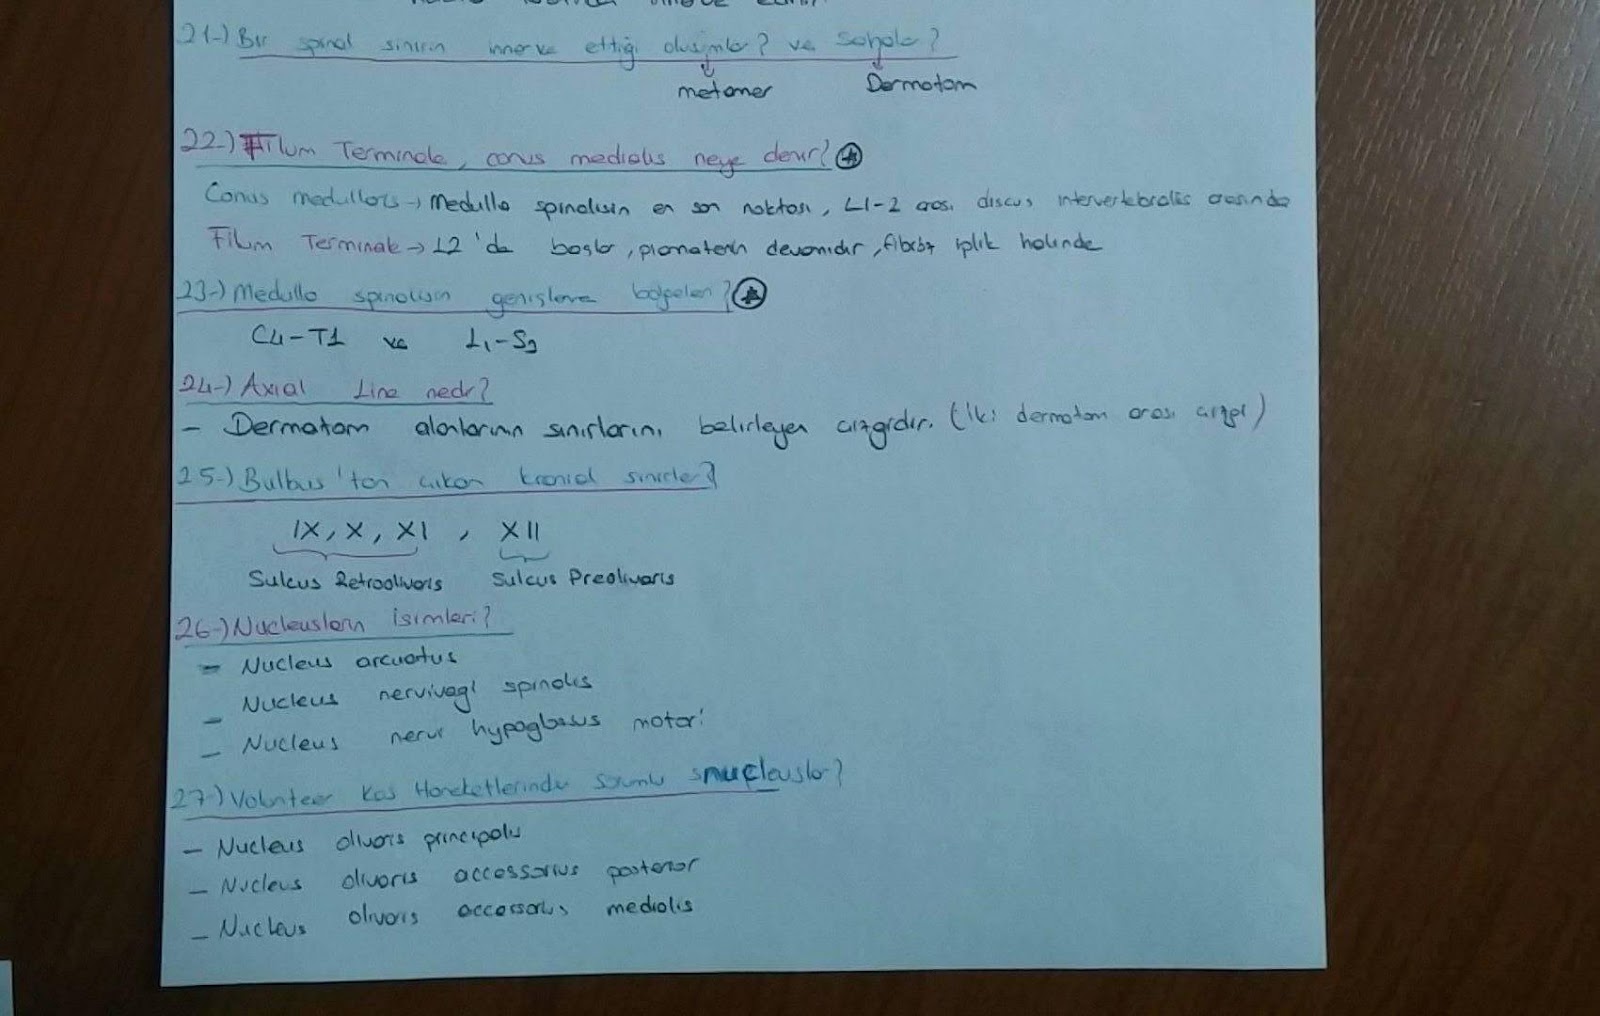 21-) Bir spinal sinirin innerve ettiği oluşumlar? ve sahalar?
metamer Dermatom
22-) Filum Terminale, conus medialis neye denir?
Conus medullaris → Medulla spinalisin en son noktası, L1-2 arası discus intervertebralis arasında
Filum Terminale → L2'da başlar, piamaterin devamıdır, fibröz iplik halinde
23-) Medulla spinalisin genişleme bölgeleri?
C4-T1 ve L1-S2
24-) Axial Line nedir?
- Dermatom alanlarının sınırlarını belirleyen çizgidir. (İki dermatom arası çizgi)
25-) Bulbus'tan çıkan kranial sinirler?
IX, X, XI, XII
Sulcus Retroolivaris Sulcus Preolivaris
26-) Nucleusların isimleri?
- Nucleus arcuatus
- Nucleus nervivagi spinalis
- Nucleus nervi hypoglossus motori
27-) Volunteer Kas Hareketlerinden sorumlu nucleuslar?
- Nucleus olivaris principalis
- Nucleus olivaris accessorius posterior
- Nucleus olivaris accessorius medialis